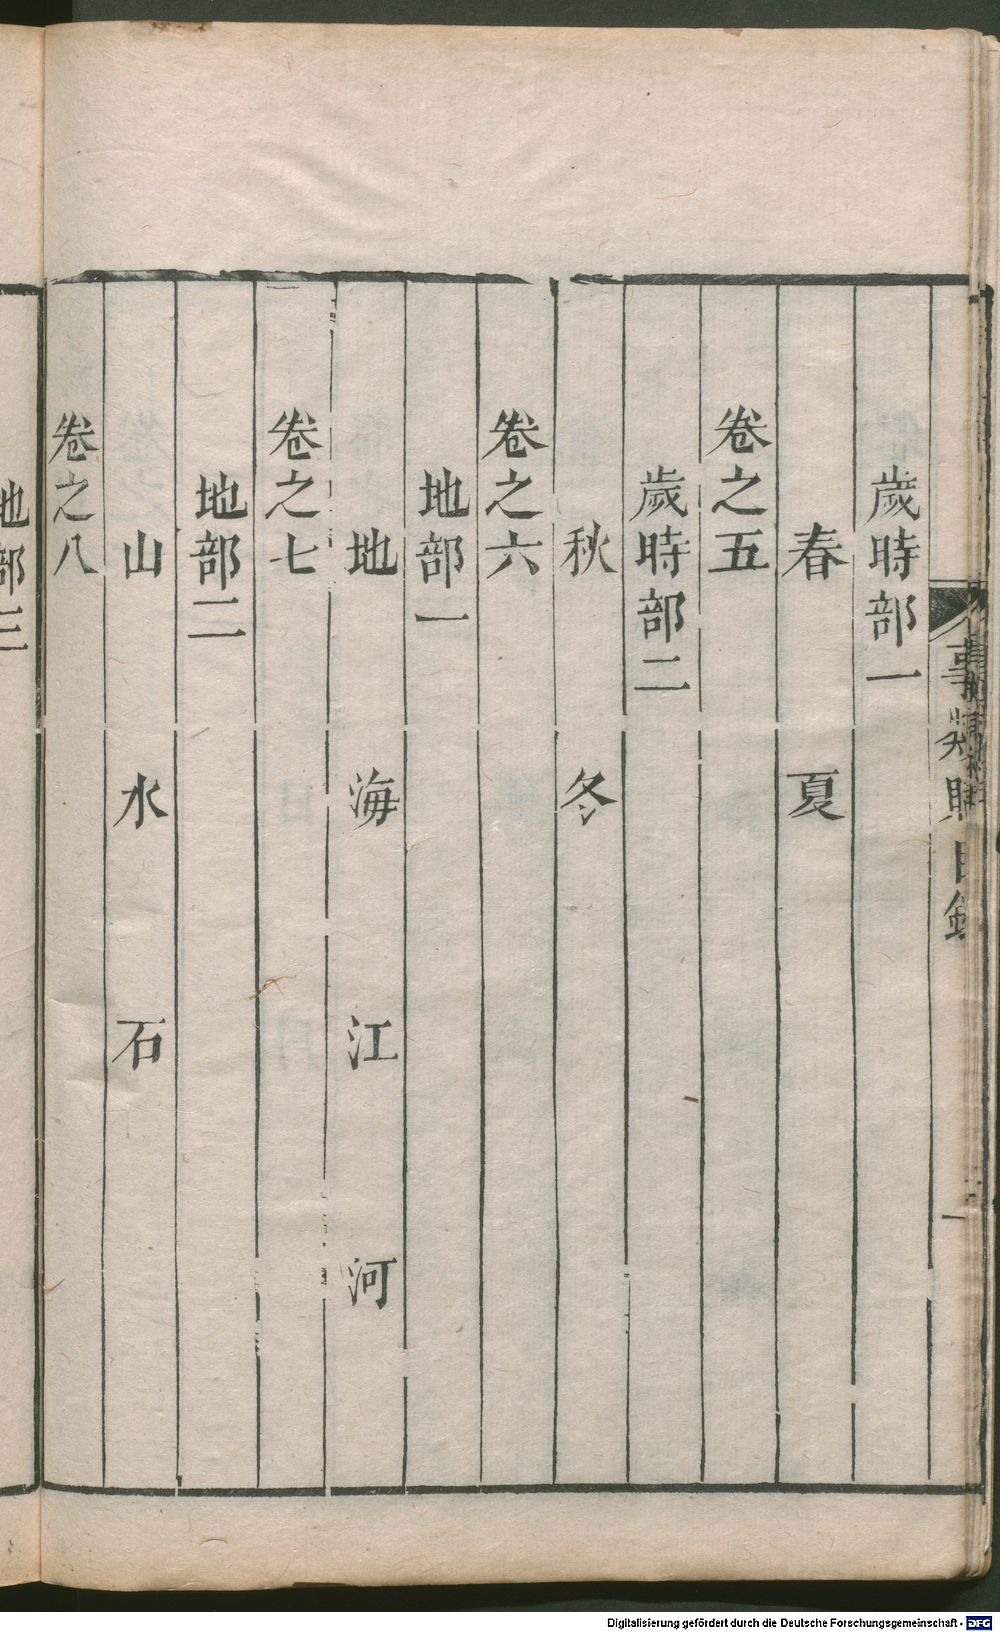 事類賦目錄
一
歲時部一
春 夏
卷之五
歲時部二
秋 冬
卷之六
地部一
地 海 江 河
卷之七
地部二
山 水 石
卷之八
地部三
Digitalisierung gefördert durch die Deutsche Forschungsgemeinschaft - DFG